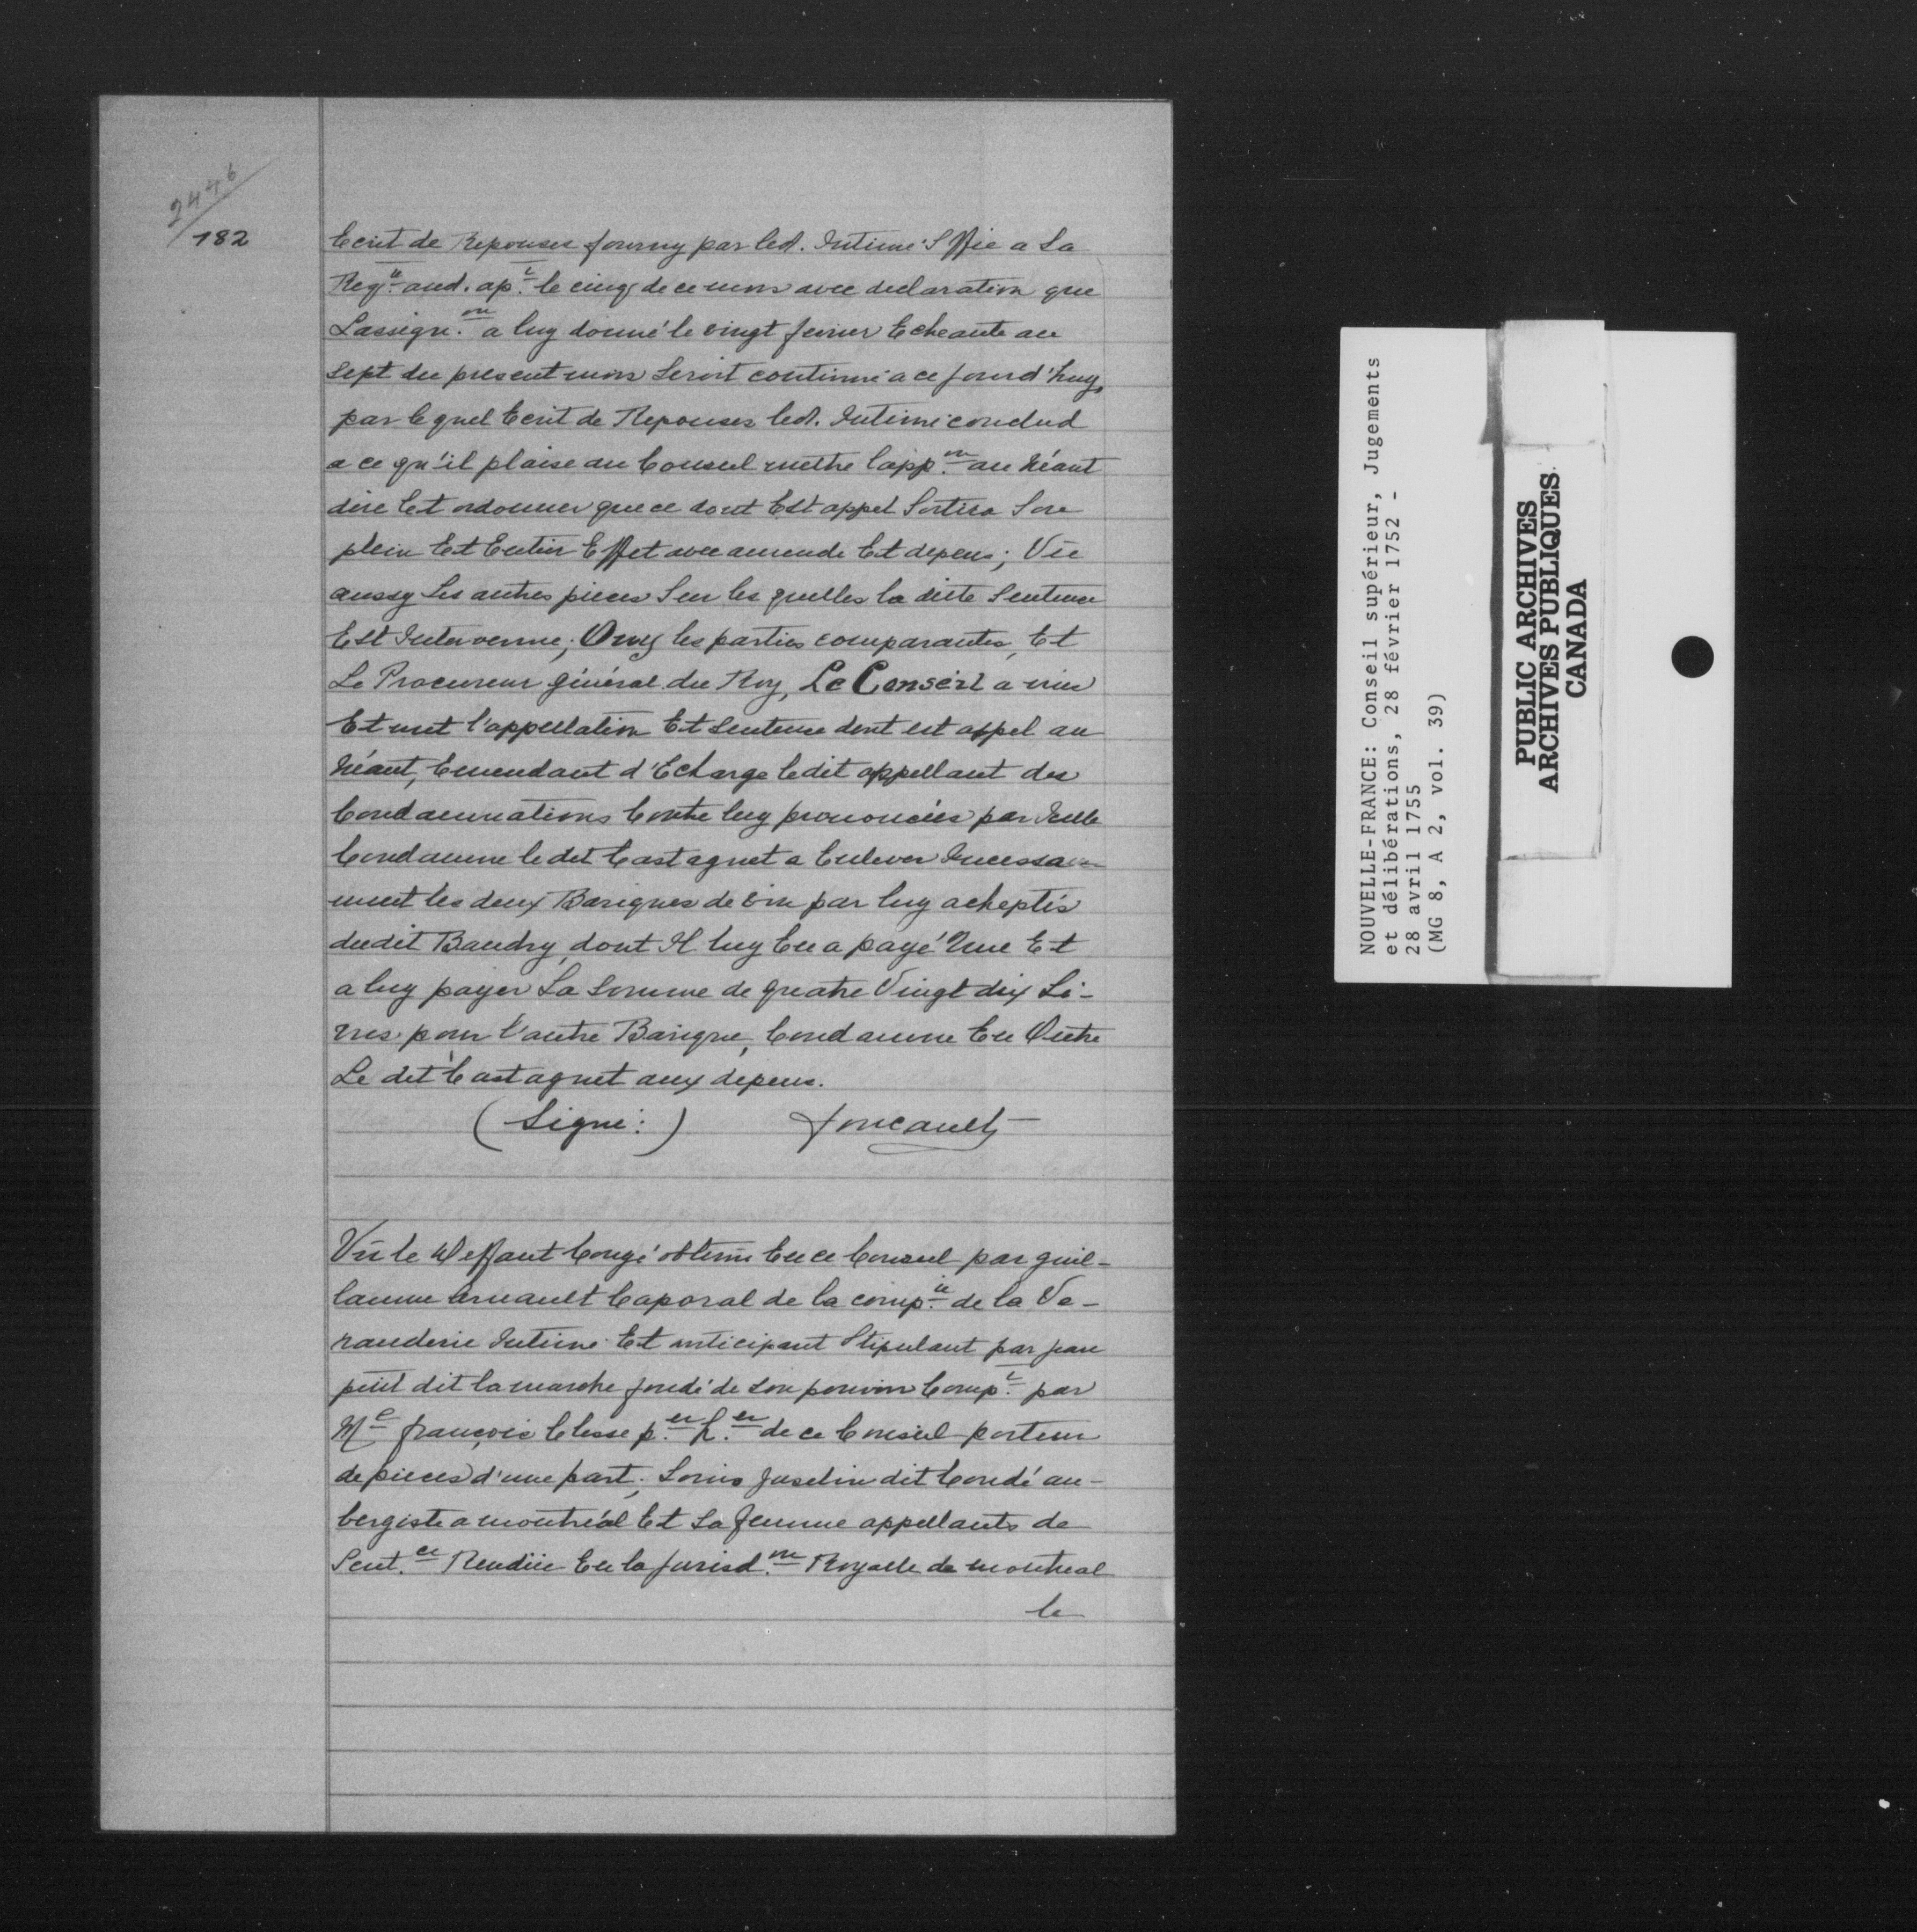 2446
182
Ecrit de Reponses fourny par led. Intimé Sffié a La
Reqte aud. apt le cinq de ce mois avec declaration que
Lassignon a luy donné le vingt fevrier Echeante au
Sept du present mois Seroit continué a ce jourd'huy,
par lequel Ecrit de Reponses led. Intimé conclud
a ce qu'il plaise au Conseil mettre lappon au Néant
dire Et ordonner que ce dont Est appel Sortira Son
plein Et Entier Effet avec amende Et depens; Vûe
aussy Les autres pieces Sur les quelles la dite Sentence
Est Intervenue; Ouy les parties comparantes, Et
Le Procureur général du Roy, Le Conseil a mis
Et met l'appellation Et Sentence dont est appel au
Néant, Emendant d'Echarge ledit appellant des
Condamnations Contre luy prononcées par Icelle
Condamne ledit Castagnet a Enlever Incessam
ment les deux Bariques de vin par luy acheptés
dudit Baudry, dont Il luy En a payé Une Et
a luy payer La Somme de quatre Vingt dix Li-
vres pour l'autre Barique, Condamne En Outre
Le dit Castagnet aux depens.
(Signé:) foucault
Vû le Deffaut Congé obtenu En ce Conseil par guil-
laume arnault Caporal de la compie de la Ve-
randerie Intimé Et anticipant Stipulant par jean
petit dit la marche fondé de son pouvoir Compt par
Me françois Clesse per her de ce Conseil porteur
de pieces d'une part; Louis Juselin dit Condé au-
bergiste a montréal Et Sa femme appellants de
Sentce Rendüe En la Jurisdon Royalle de montreal
le
NOUVELLE-FRANCE: Conseil supérieur, Jugements
et délibérations, 28 février 1752 -
28 avril 1755
(MG 8, A 2, vol. 39)
PUBLIC ARCHIVES
ARCHIVES PUBLIQUES
CANADA